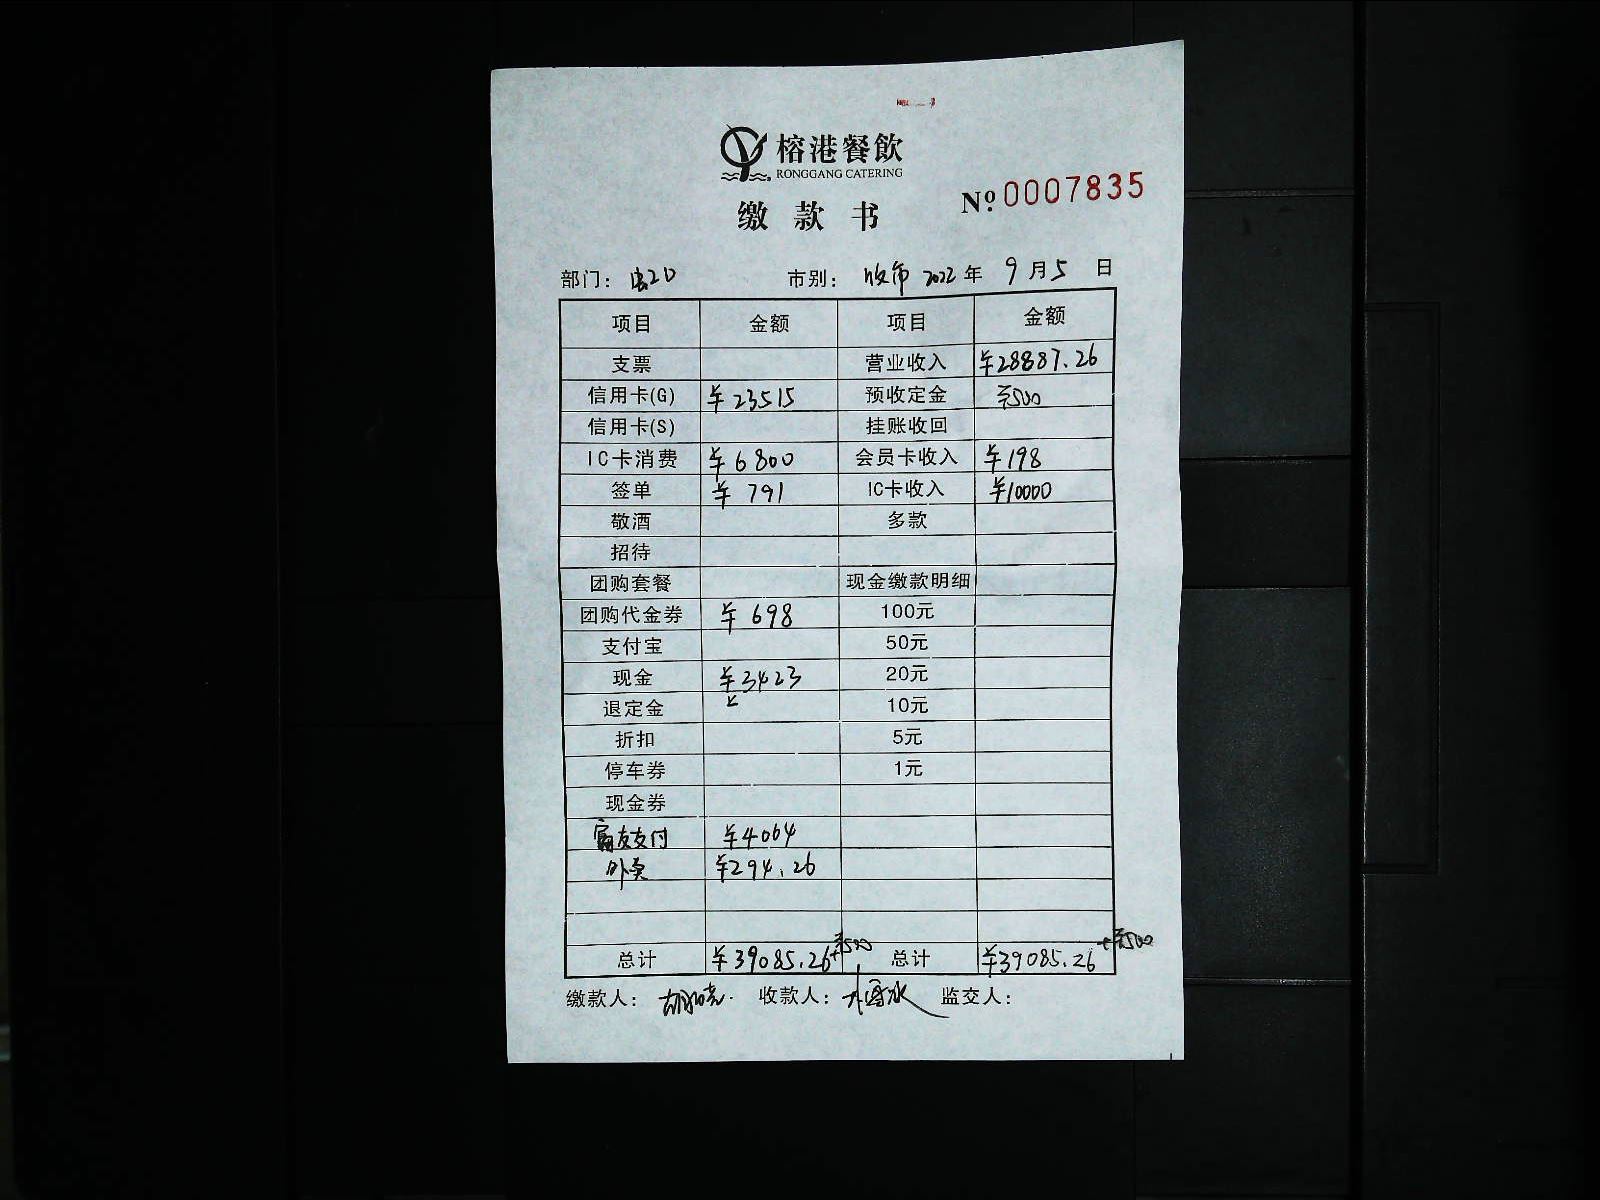 榕港餐飲
RONGGANG CATERING
缴款书
№ 0007835
部门： 市别： 收市 2022年 9月5日
项目 金额 项目 金额
支票 营业收入 ¥28887.26
信用卡(G) ¥23515 预收定金 ¥500
信用卡(S) 挂账收回
IC卡消费 ¥6800 会员卡收入 ¥198
签单 ¥791 IC卡收入 ¥10000
敬酒 多款
招待
团购套餐 现金缴款明细
团购代金券 ¥698 100元
支付宝 50元
现金 ¥3423 20元
退定金 10元
折扣 5元
停车券 1元
现金券
富友支付 ¥4064
外卖 ¥294.26
总计 ¥39085.26+¥500 总计 ¥39085.26+¥500
缴款人： 收款人： 监交人：